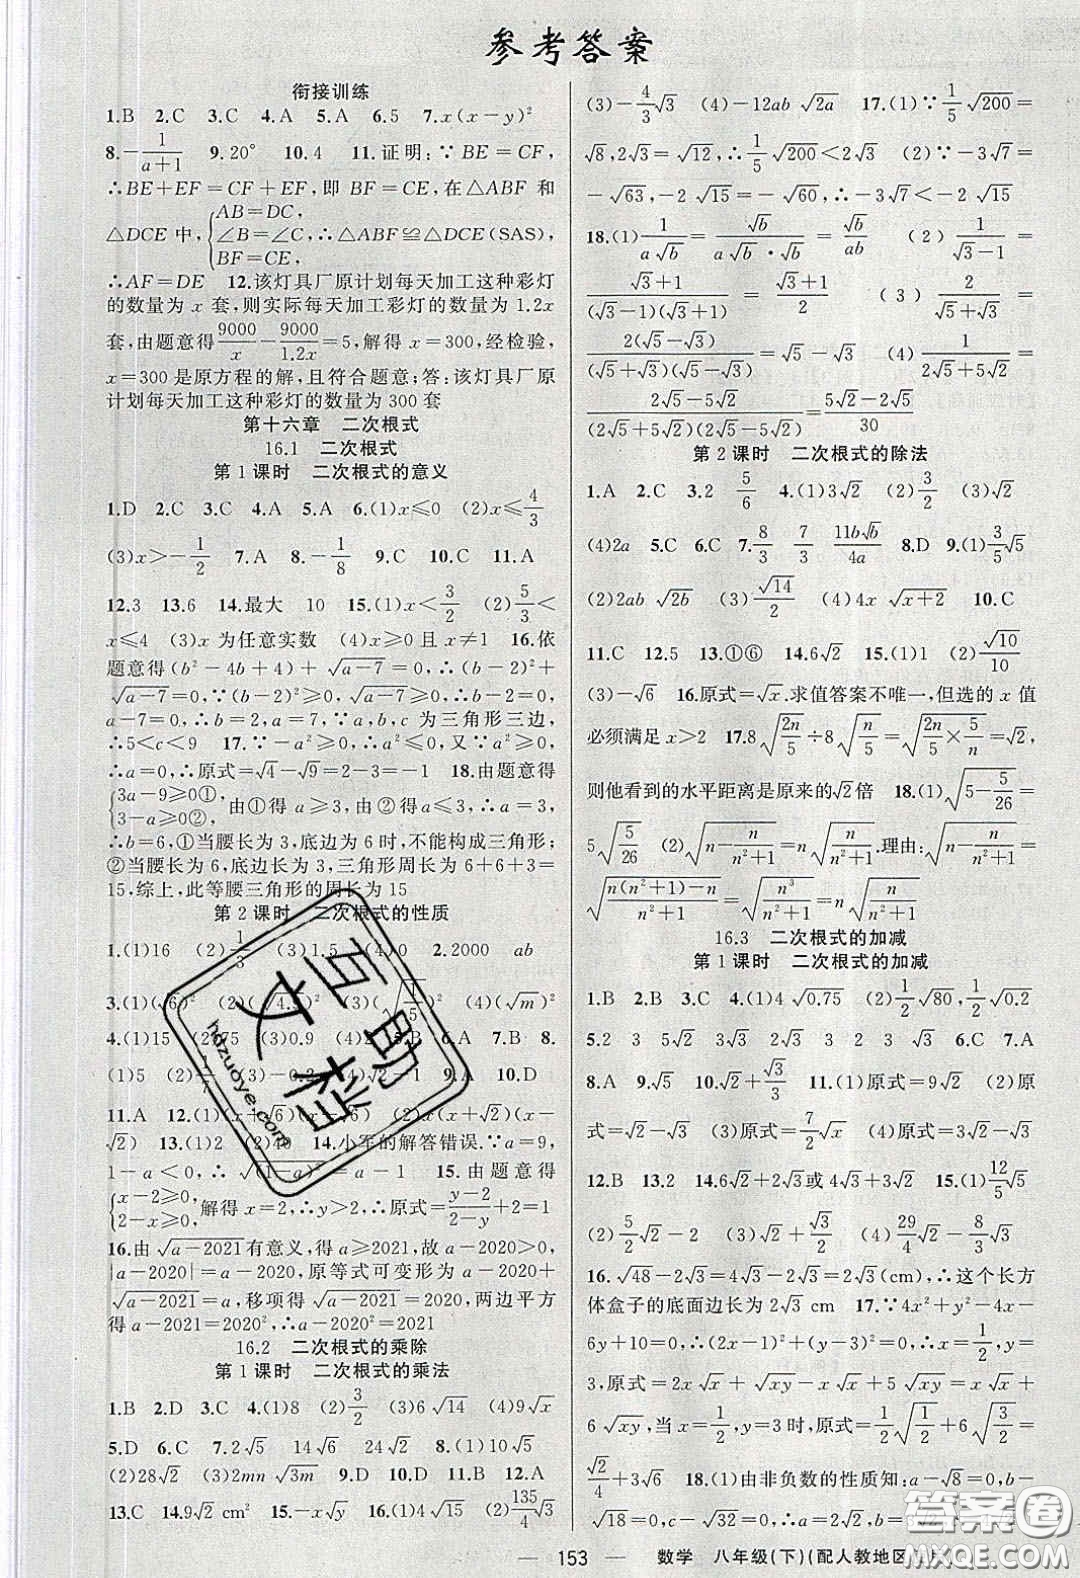 参考答案
衔接训练
1.B 2.C 3.C 4.A 5.A 6.5 7.x(x-y)²
8.-1/(a+1) 9.20° 10.4 11.证明:∵BE=CF,
∴BE+EF=CF+EF,即 BF=CE,在△ABF 和
△DCE中,{AB=DC, ∠B=∠C, BF=CE, ∴△ABF≌△DCE(SAS),
∴AF=DE 12.该灯具厂原计划每天加工这种彩灯
的数量为 x 套,则实际每天加工彩灯的数量为 1.2x
套,由题意得9000/x-9000/1.2x=5,解得 x=300,经检验,
x=300是原方程的解,且符合题意;答:该灯具厂原
计划每天加工这种彩灯的数量为 300 套
第十六章 二次根式
16.1 二次根式
第1课时 二次根式的意义
1.D 2.C 3.C 4.A 5.A 6.(1)x≤0 (2)x≤4/3
(3)x>-1/2 7.A 8.-1/8 9.C 10.C 11.A
12.3 13.6 14.最大 10 15.(1)x<3/2 (2)5/3<
x≤4 (3)x 为任意实数 (4)x≥0 且 x≠1 16.依
题意得(b²-4b+4)+√(a-7)=0,∴(b-2)²+
√(a-7)=0,∵(b-2)²≥0,√(a-7)≥0,∴b-2=0,
a-7=0,∴b=2,a=7,∵a,b,c 为三角形三边,
∴5<c<9 17.∵-a²≥0,∴a²≤0,又∵a²≥0,
∴a=0,∴原式=√4-√9=2-3=-1 18.由题意得
{3a-9≥0①, 3-a≥0②, 由①得 a≥3,由②得 a≤3,∴a=3,
∴b=6,①当腰长为 3,底边为 6 时,不能构成三角形;
②当腰长为 6,底边长为 3,三角形周长为 6+6+3=
15,综上,此等腰三角形的周长为 15
第2课时 二次根式的性质
1.(1)16 (2)1/3 (3)1.5 (4)0 2.2000 ab
3.(1)(√6)² (2)(√4.5)² (3)(√(1/5))² (4)(√m)²
4.(1)15 (3)0.9 5.B 6.A 7.B 8.
(1)5 (4)√2-1 9.A 10.D
11.A 12.(1)(x+√6)(x-√6) (2)x(x+√2)(x-
√2) 13.(1)2 14.小军的解答错误.∵a=9,
1-a<0,∴√(1-a)²=a-1 15.由题意得
{x-2≥0, 2-x≥0, 解得 x=2,∴y>2,∴原式=(y-2)/(2-y)+2=1
16.由√(a-2021)有意义,得 a≥2021,故 a-2020>0,
|a-2020|=a-2020,原等式可变形为 a-2020
+√(a-2021)=a,移项得√(a-2021)=2020,两边平方
得 a-2021=2020²,∴a-2020²=2021
16.2 二次根式的乘除
第1课时 二次根式的乘法
1.B 2.D 3.C 4.(1)8 (2)3/2 (3)6√14 (4)9√2
5.D 6.C 7.2√5 14√6 24√2 8.(1)10√5
(2)28√2 (3)2mn√3m 9.D 10.D 11.B 12.A
13.C 14.9√2 cm² 15.-x√y 16.(1)4√15 (2)135/4√3
(3)-4/3√3 (4)-12ab√2a 17.(1)∵1/5√200=
√8,2√3=√12,∴1/5√200<2√3 (2)∵-3√7=
-√63,-2√15=-√60,∴-3√7<-2√15
18.(1)1/(a√b)=√b/(a√b·√b)=√b/ab (2)1/(√3-1)=
(√3+1)/((√3-1)(√3+1))=(√3+1)/2 (3)2/(√5+√3)=
2(√5-√3)/((√5+√3)(√5-√3))=√5-√3 (4)1/(2√5+5√2)=
(2√5-5√2)/((2√5+5√2)(2√5-5√2))=(5√2-2√5)/30
第2课时 二次根式的除法
1.A 2.C 3.2 5/6 4.(1)3√2 (2)3/2 (3)√2
(4)2a 5.C 6.C 7.8/3 7/3 11b√b/4a 8.D 9.(1)3/5√5
(2)2ab√2b (3)√14/2 (4)4x√(x+2) 10.C
11.C 12.5 13.①⑥ 14.6√2 15.(1)1 (2)√10/10
(3)-√6 16.原式=√x.求值答案不唯一,但选的 x 值
必须满足 x>2 17.8√(2n/5)÷8√(n/5)=√(2n/5×5/n)=√2,
则他看到的水平距离是原来的√2倍 18.(1)√(5-5/26)=
5√(5/26) (2)√(n-n/(n²+1))=n√(n/(n²+1)).理由:√(n-n/(n²+1))=
√((n(n²+1)-n)/(n²+1))=√(n³/(n²+1))=n√(n/(n²+1))
16.3 二次根式的加减
第1课时 二次根式的加减
1.B 2.B 3.C 4.(1)4√0.75 (2)1/2√80,1/2√0.2
5.2 3 5√2 3 2√3 2 3 2 6.C 7.A
8.A 9.√5 10.√2+√3/3 11.(1)原式=9√2 (2)原
式=√2-√3 (3)原式=7/2√x (4)原式=3√2-√3
12.B 13.2 14.6√2+2√3或4√3+3√2 15.(1)12/5√5
(2)5/2√2 (3)√2+√3/2 (4)29/4√2-8/3√3
16.√48-2√3=4√3-2√3=2√3(cm),∴这个长方
体盒子的底面边长为 2√3 cm 17.∵4x²+y²-4x-
6y+10=0,∴(2x-1)²+(y-3)²=0,∴x=1/2,y=
3,原式=2x√x+√xy-x√x+5√xy=x√x+
6√xy,当 x=1/2,y=3时,原式=1/2√(1/2)+6√(3/2)=
√2/4+3√6 18.(1)由非负数的性质知:a-√8=0,b-
√18=0,c-√32=0,∴
153 数学 八年级(下)(配人教地区
互助文档
hdzuoye.com
答案圈
MXQE.COM